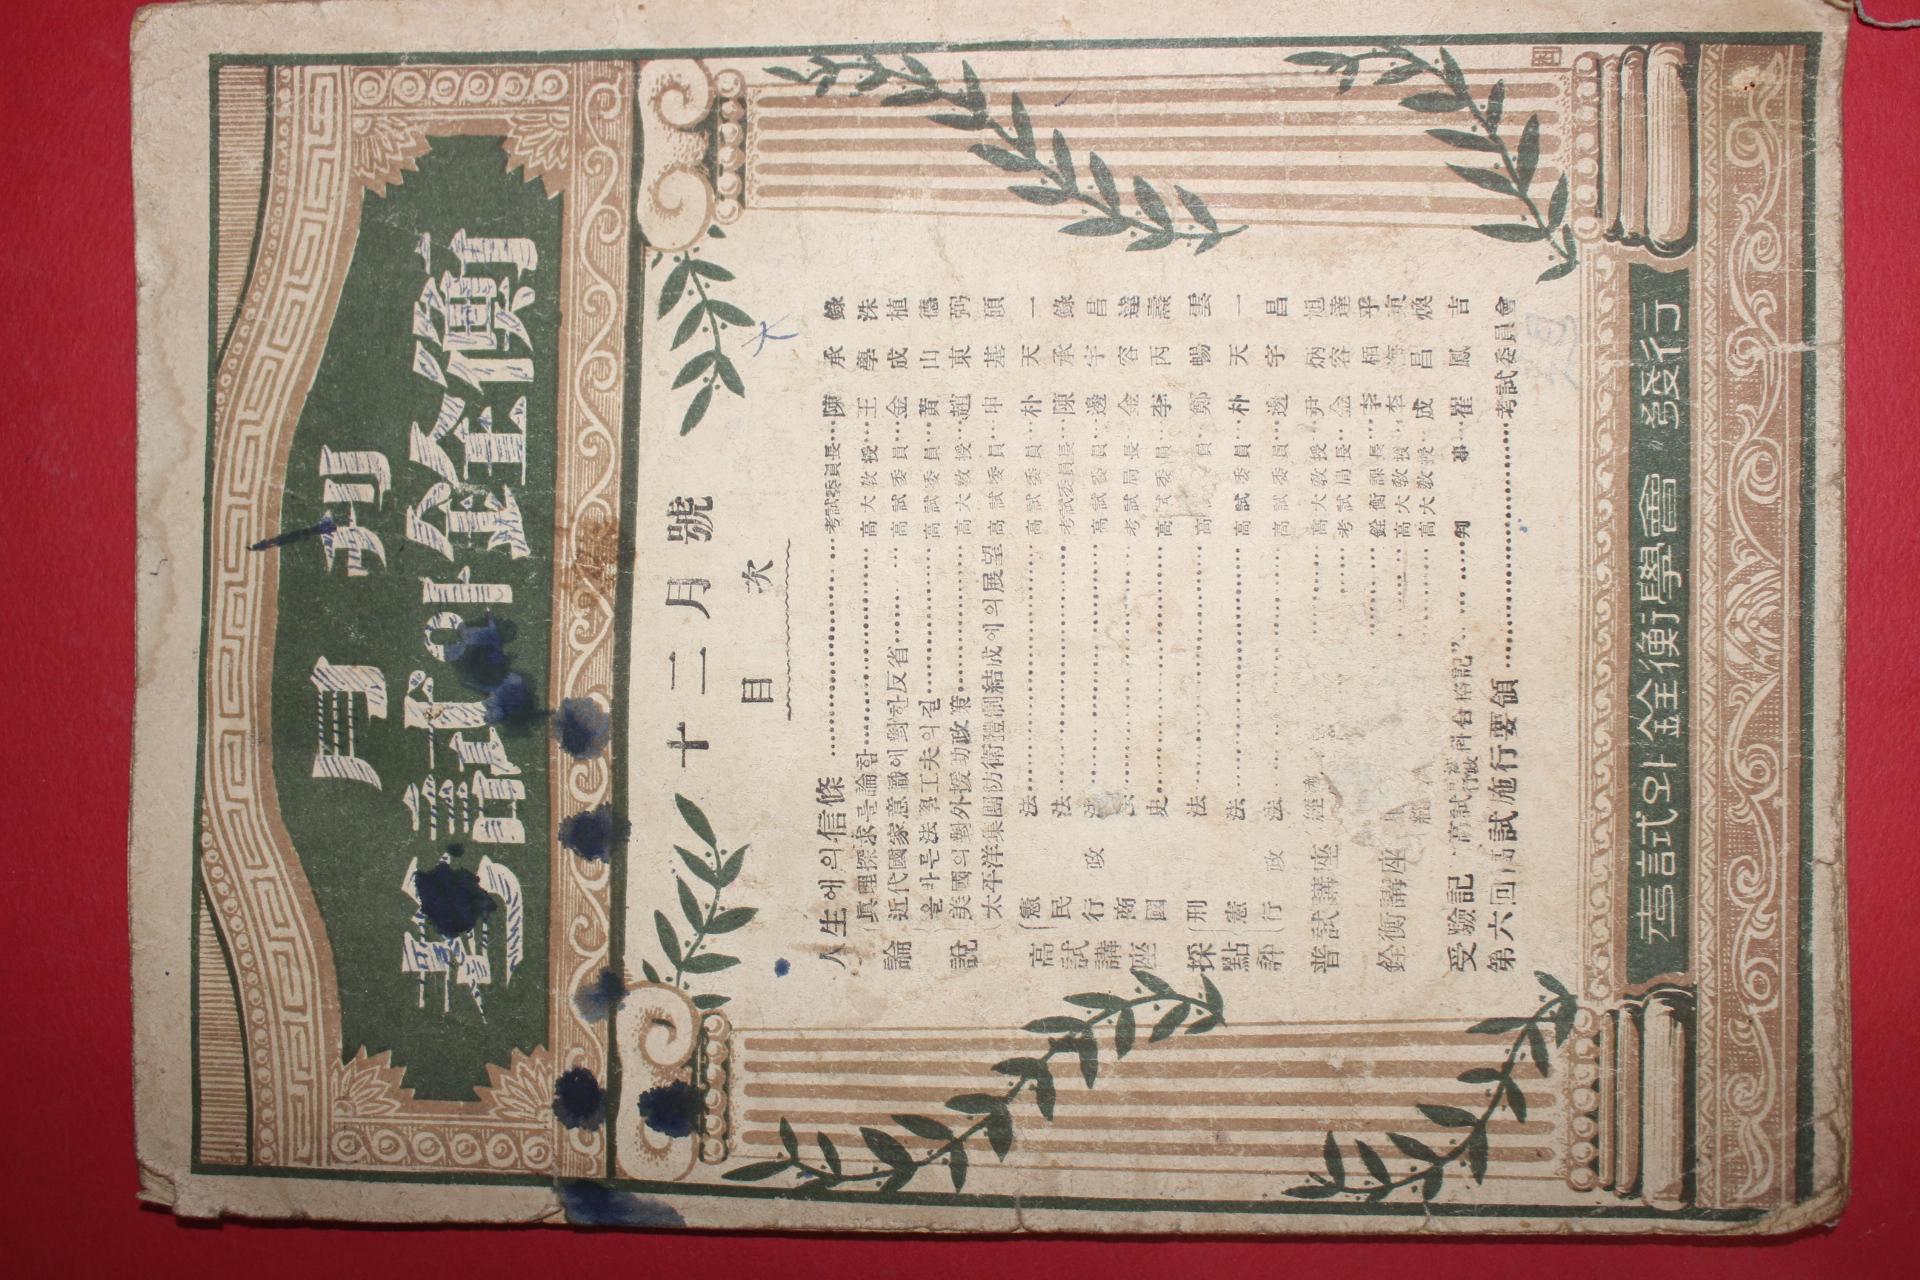 月刊
考試와銓衡
十二月號
目次
人生에의信條 考試委員長 陳承錄
論說
眞理探求를論함 高大敎授 王學洙
近代國家意識에對한反省 高試委員 金成植
올바른法學工夫의길 高試委員 黃山德
美國의對外援助政策 高大敎授 趙東弼
太平洋集團防衛體制結成에의展望 高試委員 申基碩
高試講座
憲法 高試委員 朴天一
民法 考試委員長 陳承錄
行政法 高試委員 邊宇昌
商法 考試局長 金容達
國史 高試委員 李丙燾
採點評
刑法 高試委員 鄭暢雲
憲法 高試委員 朴天一
行政法 高試委員 邊宇昌
普試講座 經濟 高大敎授 尹炳旭
考試局長 金容達
銓衡講座 銓衡課長 李栢
高大敎授 李海
高大敎授 成昌煥
受驗記 “高試行政科合格記” 判事 崔鳳吉
第六回高試施行要領 考試委員會
考試와銓衡學會 發行